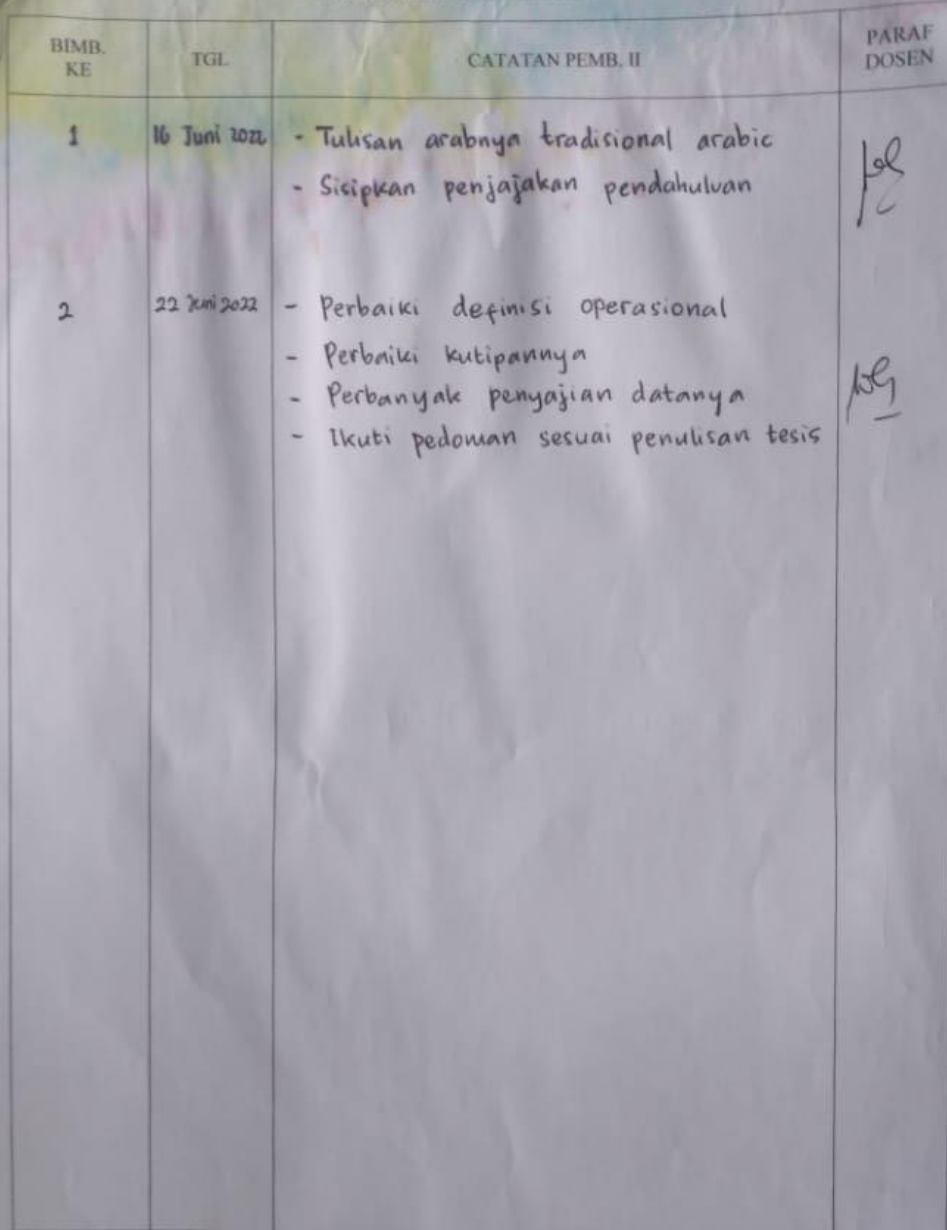 BIMB. KE TGL CATATAN PEMB. II PARAF DOSEN
1 16 Juni 2022 - Tulisan arabnya tradisional arabic
- Sisipkan penjajakan pendahuluan
2 22 Juni 2022 - Perbaiki definisi operasional
- Perbaiki kutipannya
- Perbanyak penyajian datanya
- Ikuti pedoman sesuai penulisan tesis